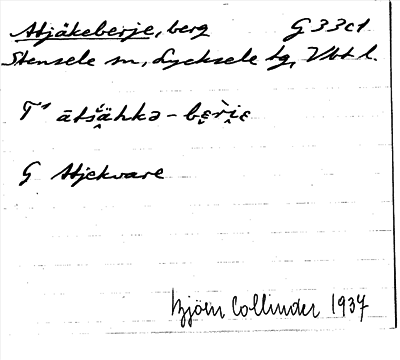 Atjäkeberje, berg G 33c1
Stensele sn, Lycksele tg, Vbt l.
T¹ ātšä̭hkə - bɛ̭rìɛ
G Atjekvare
Björn Collinder 1937